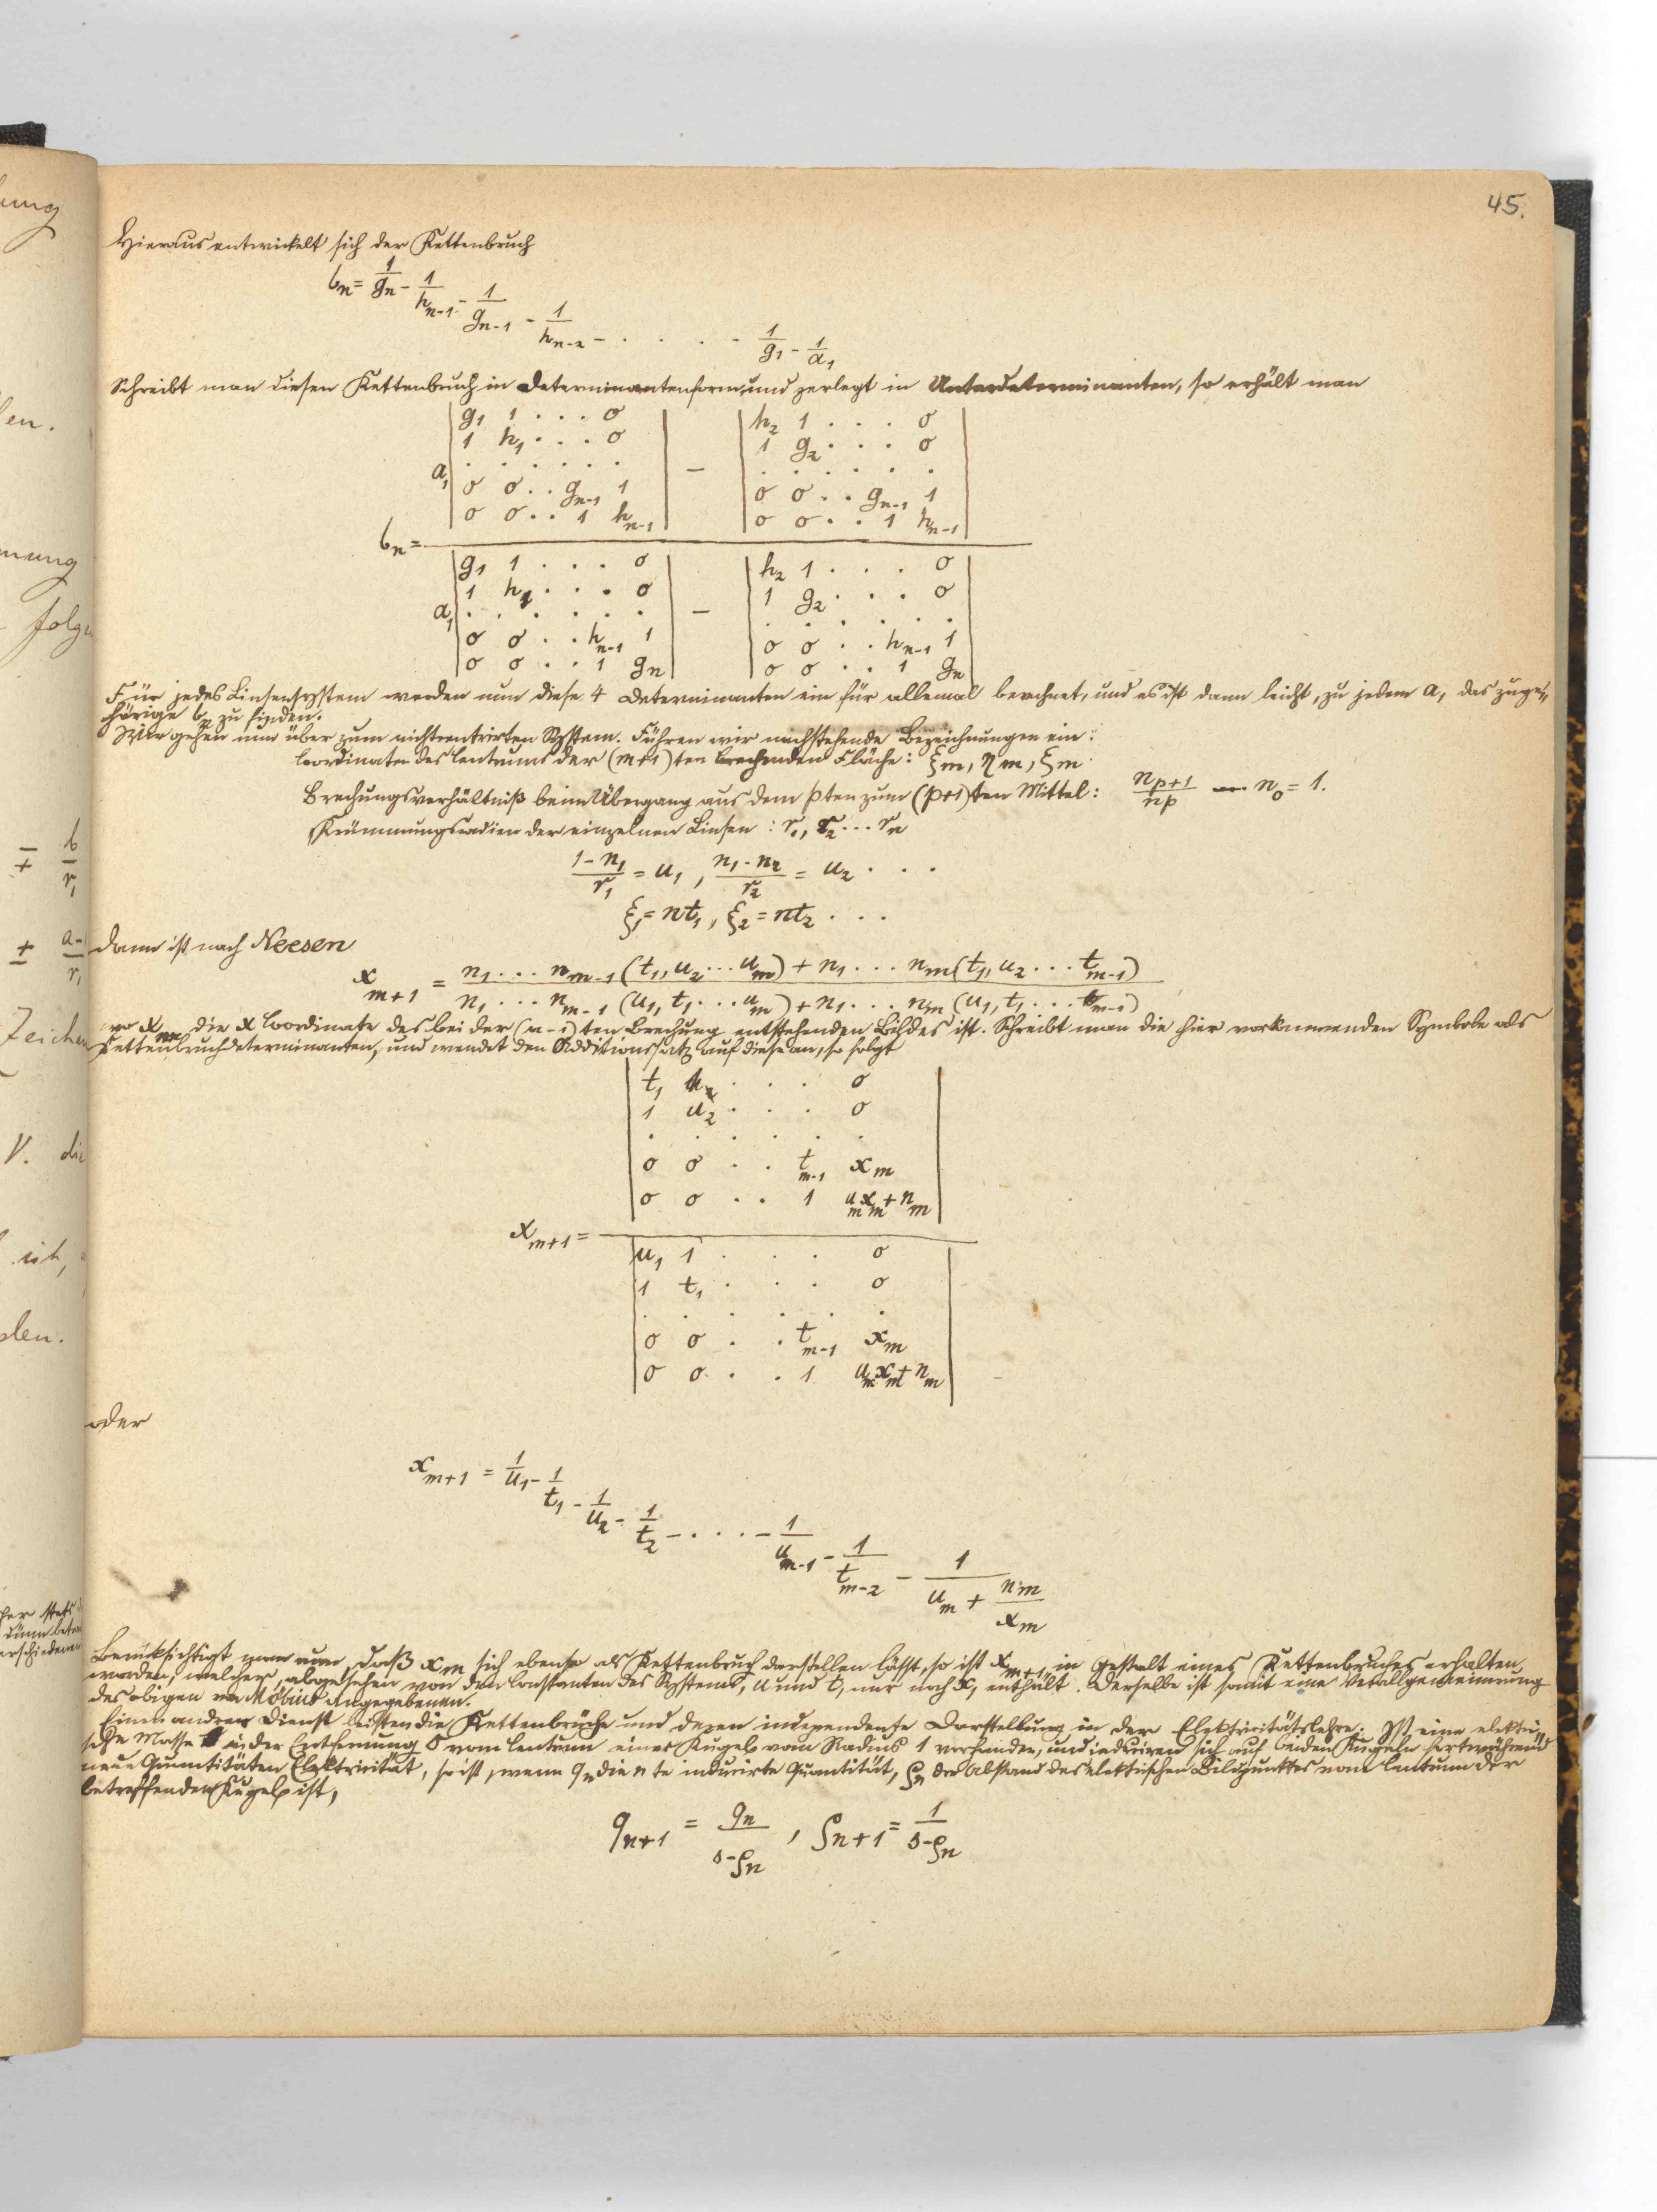 45.
Hieraus entwickelt sich der Kettenbruch
b_n = 1/g_n - 1/h_{n-1} - 1/g_{n-1} - 1/h_{n-2} - . . . . - 1/g_1 - 1/a_1
Schreibt man diesen Kettenbruch in Determinantenform, und zerlegt in Unterdeterminanten, so erhält man
g_1 1 . . . 0   h_2 1 . . . 0
1 h_1 . . . 0   1 g_2 . . . 0
a_1 . . . . . . - . . . . . .
0 0 . . g_{n-1} 1   0 0 . . g_{n-1} 1
0 0 . . 1 h_{n-1}   0 0 . . 1 h_{n-1}
b_n =
g_1 1 . . . 0   h_2 1 . . . 0
1 h_1 . . . 0   1 g_2 . . . 0
a_1 . . . . . . - . . . . . .
0 0 . . h_{n-1} 1   0 0 . . h_{n-1} 1
0 0 . . 1 g_n   0 0 . . 1 g_n
Für jedes Linsensystem werden nun diese 4 Determinanten ein für allemal berechnet, und es ist dann leicht, zu jedem a_1 das zuge-
hörige b_n zu finden.
Wir gehen nun über zum nichtcentrirten System. Führen wir nachstehende Bezeichnungen ein:
Coordinaten des Centrums der (m+1)ten brechenden Fläche: ξ_m, η_m, ζ_m
Brechungsverhältniß beim Übergang aus dem pten zum (p+1)ten Mittel: n_{p+1}/n_p n_0 = 1.
Krümmungsradien der einzelnen Linsen: r_1, r_2 ... r_n
(1-n_1)/r_1 = u_1, (n_1-n_2)/r_2 = u_2 . . .
ξ_1 = nt_1, ξ_2 = nt_2 . . .
dann ist nach Neesen
x_{m+1} = (n_1 ... n_{m-1} (t_1, u_2 ... u_m) + n_1 ... n_m (t_1, u_2 ... t_{m-1})) / (n_1 ... n_{m-1} (u_1, t_1 ... u_m) + n_1 ... n_m (u_1, t_1 ... t_{m-1}))
wo x_m die x Coordinate des bei der (m-1)ten Brechung entstehenden Bildes ist. Schreibt man die hier vorkommenden Symbole als
Kettenbruchdeterminanten, und wendet den Additionssatz auf diese an, so folgt
t_1 . . . 0
1 u_2 . . . 0
. . . . . .
0 0 . . t_{m-1} x_m
0 0 . . 1 u_m x_m + n_m
x_{m+1} =
u_1 1 . . . 0
1 t_1 . . . 0
. . . . . .
0 0 . . t_{m-1} x_m
0 0 . . 1 u_m x_m + n_m
oder
x_{m+1} = 1/u_1 - 1/t_1 - 1/u_2 - 1/t_2 - . . . - 1/u_{m-1} - 1/t_{m-2} - 1/(u_m + n_m/x_m)
Berücksichtigt man nun, daß x_m sich ebenso als Kettenbruch darstellen läßt, so ist x_{m+1} in Gestalt eines Kettenbruches erhalten
worden, welcher, abgesehen von den Constanten des Systems, u und t, nur noch x_1 enthält. Derselbe ist somit eine Verallgemeinerung
des obigen von Möbius angegebenen.
Einen andren Dienst leisten die Kettenbrüche und deren independente Darstellung in der Elektricitätslehre. Ist eine elektri-
sche Masse in der Entfernung vom Centrum einer Kugel vom Radius 1 vorhanden, und induciren sich auf beiden Kugeln fortwährend
neue Quantitäten Elektricität, so ist, wenn q_n die n te inducirte Quantität, ρ_n der Abstand des elektrischen Bildpunktes vom Centrum der
betreffenden Kugel ist,
q_{n+1} = q_n/(s-ρ_n), ρ_{n+1} = 1/(s-ρ_n)